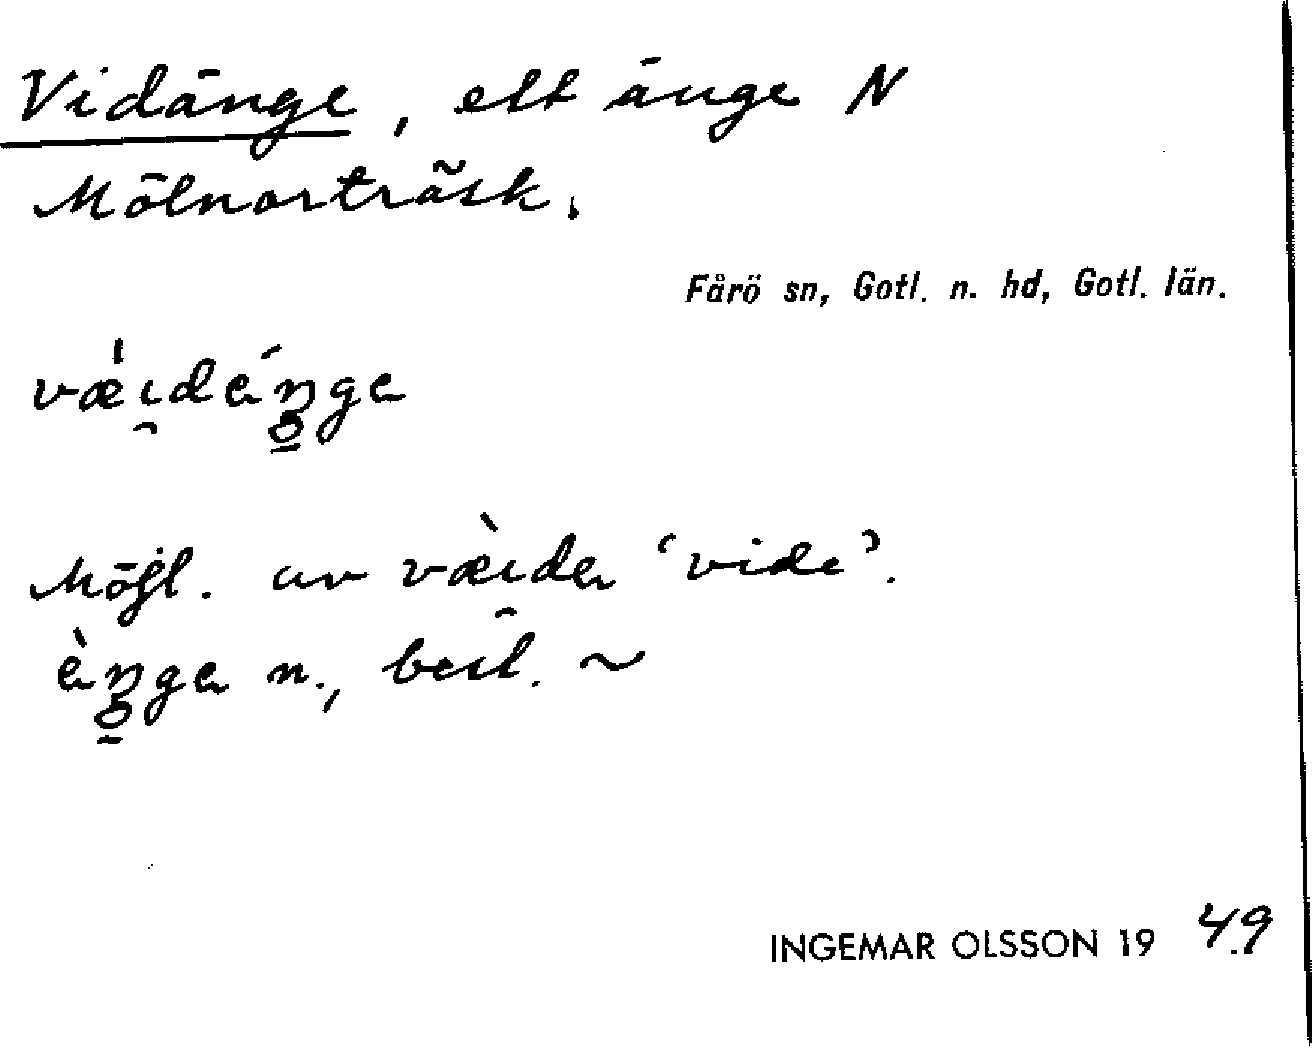 Vidänge, ett änge N
Mölnorträsk.
Fårö sn, Gotl. n. hd, Gotl. län.
væ̀i̯déŋ̥ge
Möjl. av væ̀i̯de 'vide'.
èŋ̥ge n., best. ~
INGEMAR OLSSON 19 49